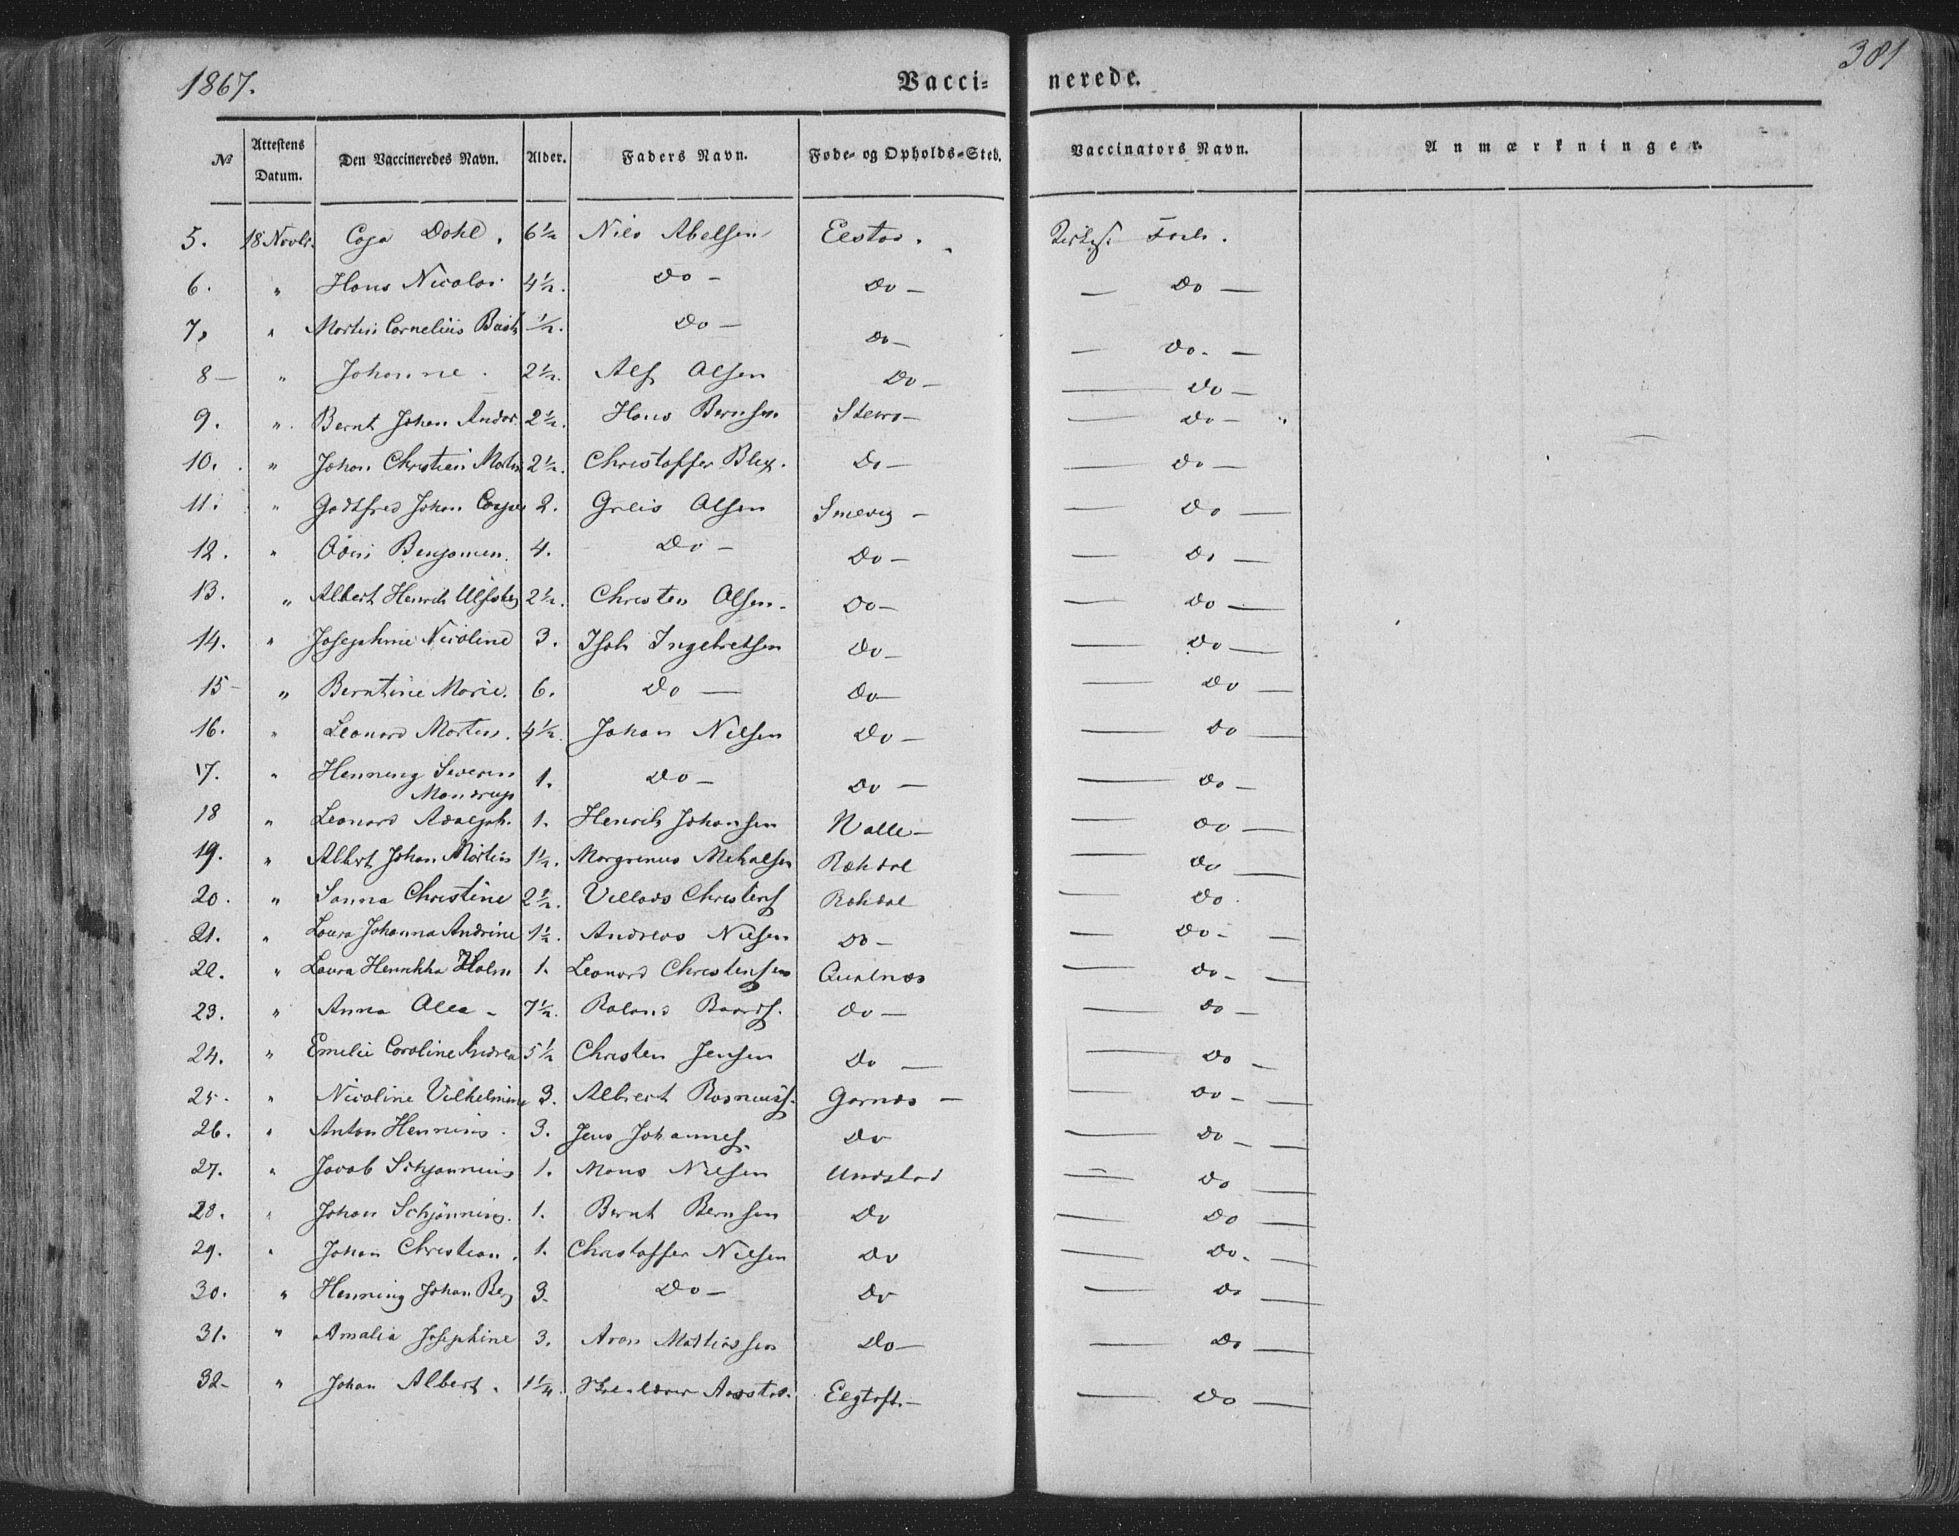 1867. Vacci- nerede. 381
№ Attestens Datum. Den Vaccineredes Navn. Alder. Faders Navn. Føde- og Opholds-Sted. Vaccinators Navn. Anmærkninger.
5. 18 Novbr. Dahl. 6½ Nils Abelsen
6. " Hans Nicolai 4½. Do — Do — — Do —
7, " Morten Cornelius ½. Do — Do — — Do. —
8 — " Johanne. 2½. Alf Olsen Do — — Do —
9. " Bernt Johan Andor. 2½. Hans Bernsen — Do —
10. " Johan Christian Martin 2½. Christoffer Blix. Do — — Do —
11. " Godtfred Johan Casper 2. Greis Olsen Smevig — — Do —
12. " Odin Benjamin. 4. Do — Do — — Do —
13. " Albert Henrik 2½. Christen Olsen. Do — — Do —
14. " Josephine Nicoline 3. Ingebretsen Do — — Do —
15 — " Berntine Marie. 6. Do — Do — — Do —
16. " Leonard Morten. 4½. Johan Nilsen Do — — Do —
17. " Henning Severin Mandrup 1. Do — Do — — Do —
18 " Leonard Adolph. 1. Henrik Johansen — Do —
19. " Albert Johan Mortin 1½. Margrenus Mikalsen — Do —
20. " Sanna Christine 2½. Villads Christens — Do
21. " Laura Johanna Andrine 1½. Andreas Nilsen Do — — Do — —
22. " Laura Henrikka Holm 1. Leonard Christensen Qualnæs — Do — —
23. " Anna Olea — 7½. Roland Baards. Do — — Do —
24. " Emelie Caroline Andrea 5½ Christen Jensen Do — — Do —
25. " Nicoline Vilhelmine 3. Albrect Rasmuss. Garnæs — — Do — —
26. " Anton Henning. 3. Jens Johannes. Do — Do — —
27. " Jacob Schjønning 1. Mons Nilsen Undstad — Do —
28. " Johan Schjønning. 1. Bernt Bernsen Do — Do —
29. " Johan Christian. 1. Christoffer Nilsen Do — Do. —
30. " Henning Johan Berg 3. Do — Do — Do —
31. " Amalia Josephine 3. Aron Mathiassen Do — — Do —
32 — " Johan Albert. 1¼ Eegtoft. — — Do —